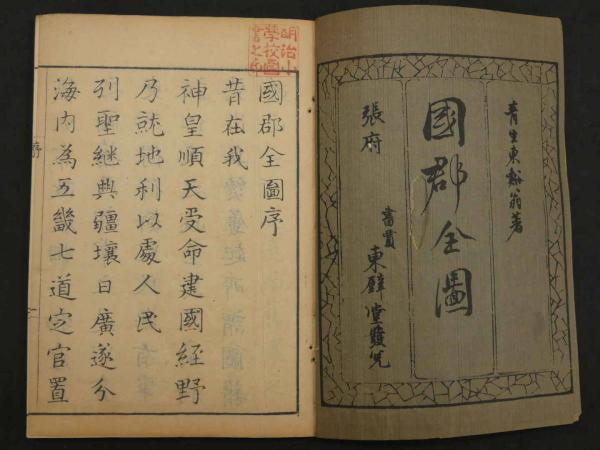 青生東谿翁著
國郡全圖
張府
書肆 東壁堂發兌
明治小
學校圖
書之印
國郡全圖序
昔在我
神皇順天受命建國經野
乃就地利以處人民
列聖継典疆壤日廣遂分
海内為五畿七道定官置
序